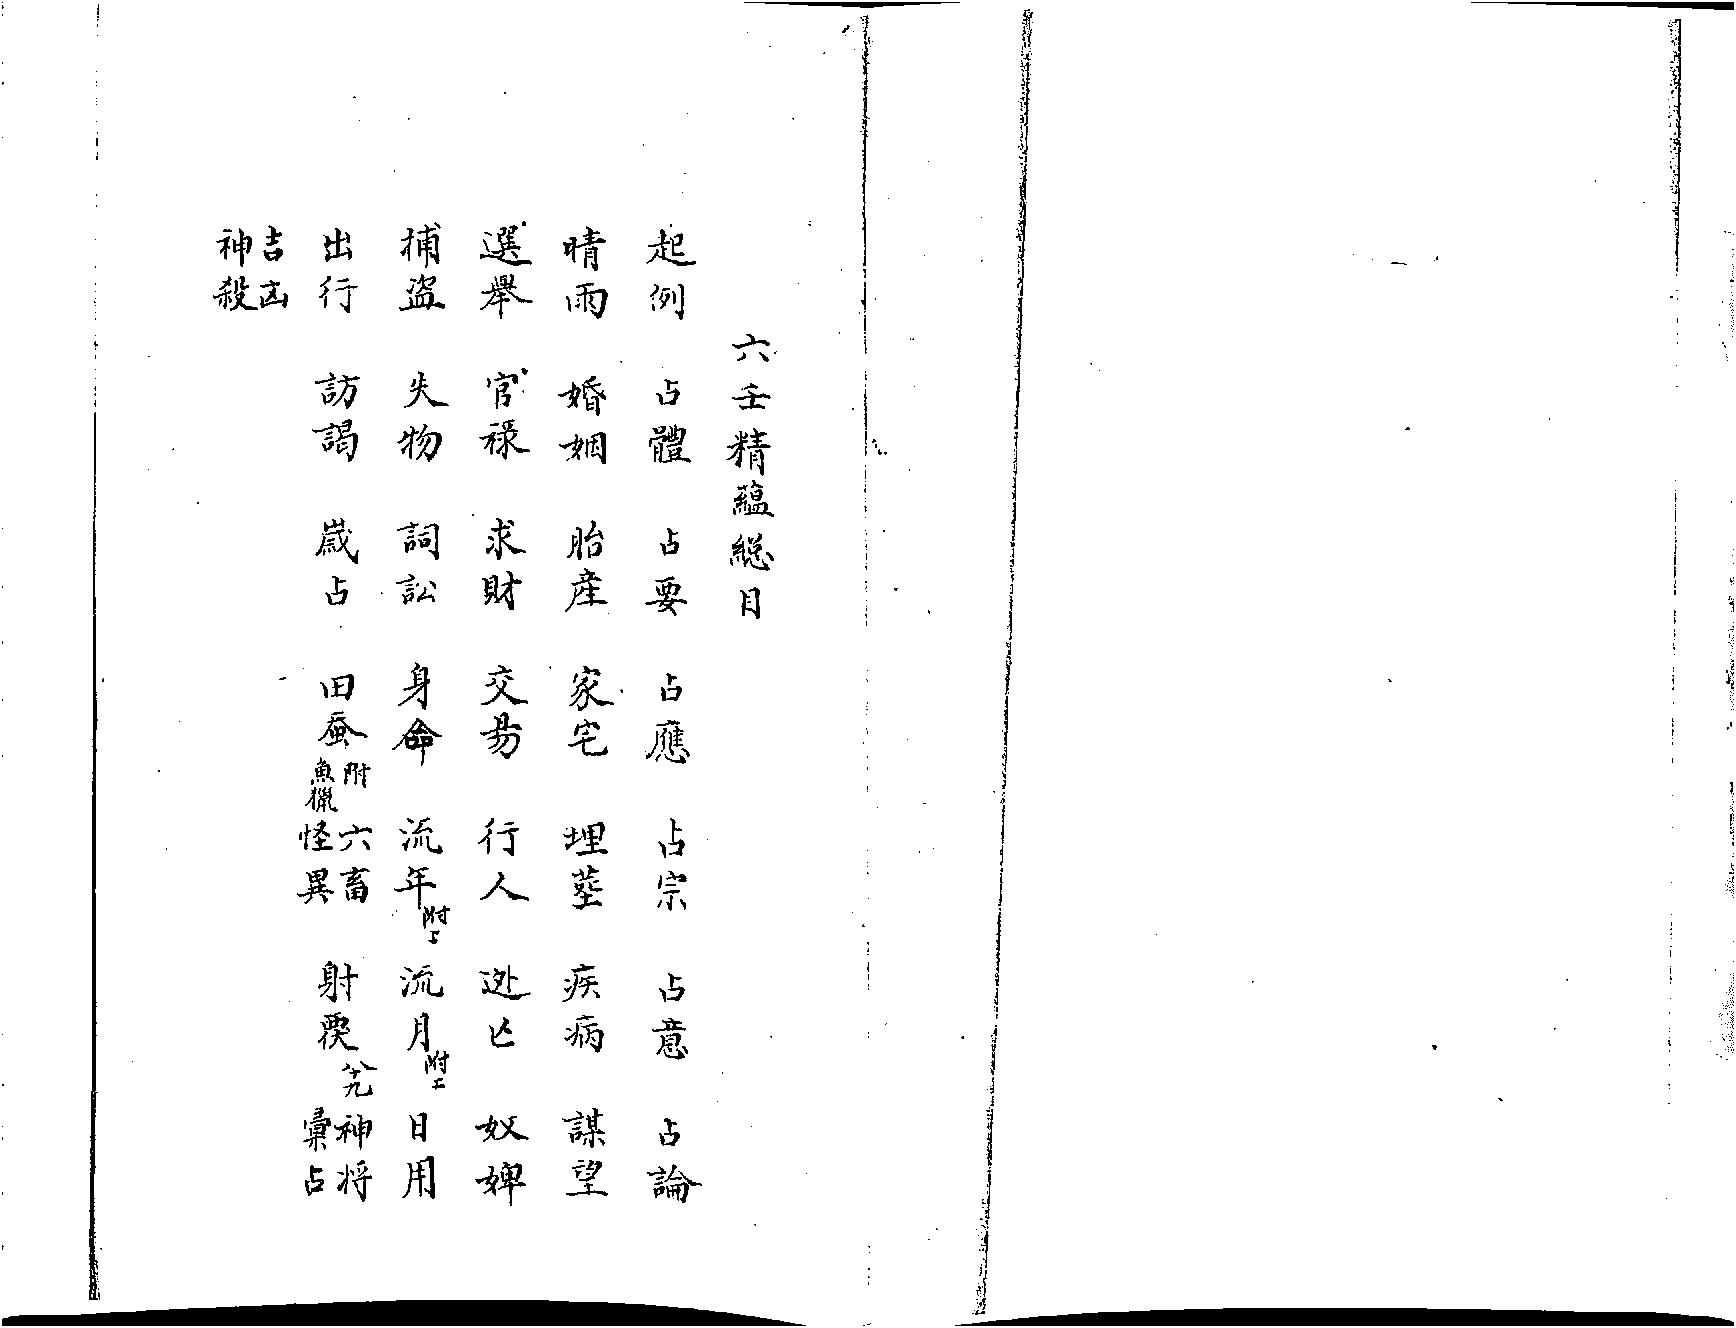 六壬精蘊総目
起例 占體 占要 占應 占宗 占意 占論
晴雨 婚姻 胎産 家宅 埋塟 疾病 謀望
選舉 官祿 求財 交易 行人 逃亡 奴婢
捕盜 失物 詞訟 身命 流年附上 流月附二 日用
出行 訪謁 歲占 田蚕附魚獵 六畜怪異 射覆 神将彙占
吉凶神殺